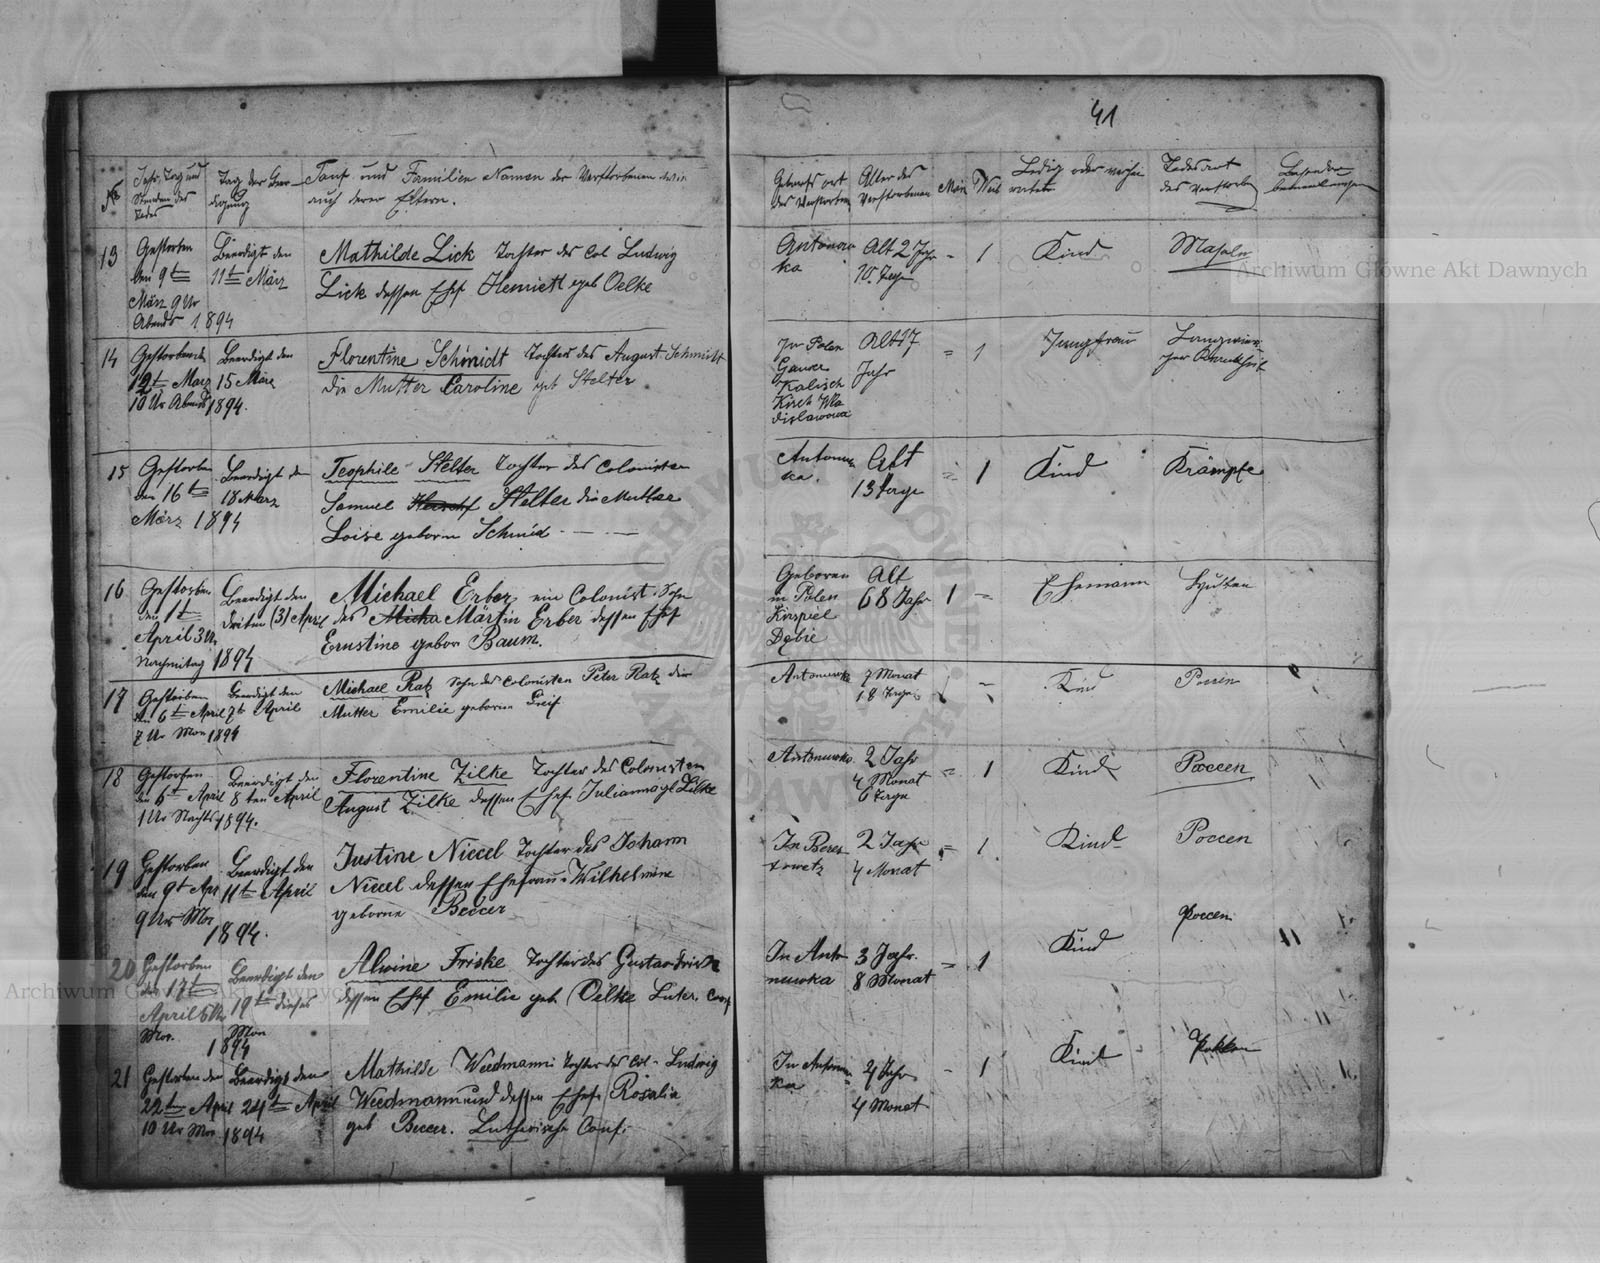 41
No
Jahr, Tag und
Stunden des
Todes
Tag der Beer-
digung
Tauf und Familien Namen der Verstorbenen
auch deren Eltern.
Geburts ort
des Verstorben
Alter des
Verstorbenen
Män
Weib
Ledig oder verhei
ratete
Todesart
des Verstorben
Besondere
bemerkungen
13
Gestorben
den 9t
März 9 Ur
Abends 1894
Beerdigt den
11t März
Mathilde Lick Tochter des Col Ludwig
Lick dessen Ehf Henriett geb Oelke
Antonow
ka
Alt 2 Jahr
10 Tage
- 1
Kind
Masaln
14
Gestorben
12t März
10 Ur Abends 1894.
Beerdigt den
15 März
Florentine Schmidt Tochter des August Schmidt
die Mutter Caroline geb Stelter
In Polen
Gauver
Kalisch
Kirch Wla
dislawowa
Alt 17
Jahr
= 1
Jungfrau
15
Gestorben
den 16t
März 1894
Beerdigt den
18 März
Teophile Stelter Tochter des Colonisten
Samuel Stelter die Mutter
Loise geborn Schmid
Antonow
ka.
Alt
13 Tage
= 1
Kind
Krämpfe
16
Gestorben
den 1t
April 3 Ur
Nachmitag 1894
Beerdigt den
driten (3) April
Michael Erber ein Colonist. Sohn
des Micha Märtin Erber dessen Ehf
Ernstine gebor Baum.
Geboren
in Polen
Kirspiel
Dąbie
Alt
68 Jahr
1 =
Ehemann
Husten
17
Gestorben
den 6t April
7 Ur Mor 1894
Beerdigt den
7t April
Michael Ratz Sohn des Colonisten Peter Ratz die
Mutter Emilie geborne Greif
Antonowka
7 Monat
18 Tage
1 -
Kind
18
Gestorben
den 6t April
1 Ur Nachts 1894.
Beerdigt den
8ten April
Florentine Zilke Tochter des Colonisten
August Zilke dessen Ehf Julianna geb Lilke
Antonowka
2 Jahr
4 Monat
6 Tage
= 1
Kind
Poccen
19
Gestorben
den 9t Apr
9 Ur Mor
1894.
Beerdigt den
11t April
Justine Niccel Tochter des Johann
Niccel dessen Ehefrau Wilhelmine
geborne Beccer
In Beres
towetz
2 Jahr
4 Monat
= 1
Kind
Poccen
20
Gestorben
den 17t
April 6 Ur
Mor.
1894
Beerdigt den
19t dieses
Mon
Alwine Friske Tochter des Gustav Friske
dessen Ehf Emilie geb Oelke Luter. Conf
In Anto
nuwka
3 Jahr.
8 Monat
- 1
Kind
Poccen
21
Gestorben den
22t April
10 Ur Mor 1894
Beerdigt den
24t April
Mathilde Weedmann Tochter des Col. Ludwig
Weedmann und dessen Ehf Rosalia
geb Beccer. Lutherische Conf.
In Antonow
ka
2 Jahr
4 Monat
- 1
Kind
Pokken
Archiwum Główne Akt Dawnych
Archiwum Główne Akt Dawnych